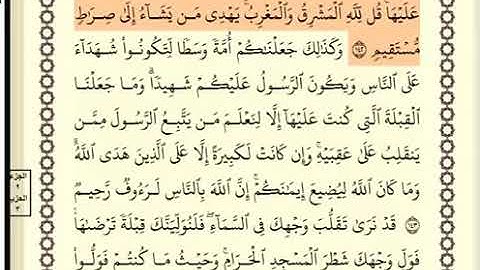 عَلَيْهَا ۚ قُل لِّلَّهِ الْمَشْرِقُ وَالْمَغْرِبُ ۚ يَهْدِي مَن يَشَاءُ إِلَىٰ صِرَاطٍ
مُّسْتَقِيمٍ ﴿١٤٢﴾ وَكَذَٰلِكَ جَعَلْنَاكُمْ أُمَّةً وَسَطًا لِّتَكُونُوا شُهَدَاءَ
عَلَى النَّاسِ وَيَكُونَ الرَّسُولُ عَلَيْكُمْ شَهِيدًا ۗ وَمَا جَعَلْنَا
الْقِبْلَةَ الَّتِي كُنتَ عَلَيْهَا إِلَّا لِنَعْلَمَ مَن يَتَّبِعُ الرَّسُولَ مِمَّن
يَنقَلِبُ عَلَىٰ عَقِبَيْهِ ۚ وَإِن كَانَتْ لَكَبِيرَةً إِلَّا عَلَى الَّذِينَ هَدَى اللَّهُ ۗ
وَمَا كَانَ اللَّهُ لِيُضِيعَ إِيمَانَكُمْ ۚ إِنَّ اللَّهَ بِالنَّاسِ لَرَءُوفٌ رَّحِيمٌ
﴿١٤٣﴾ قَدْ نَرَىٰ تَقَلُّبَ وَجْهِكَ فِي السَّمَاءِ ۖ فَلَنُوَلِّيَنَّكَ قِبْلَةً تَرْضَاهَا ۚ
فَوَلِّ وَجْهَكَ شَطْرَ الْمَسْجِدِ الْحَرَامِ ۚ وَحَيْثُ مَا كُنتُمْ فَوَلُّوا
الجزء
٢
الحزب
٣